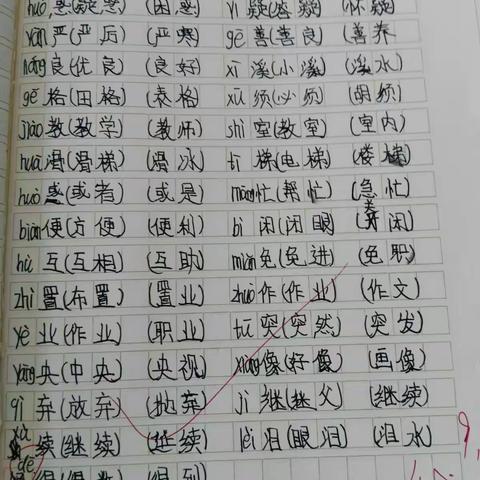 huò 惑(疑惑) (困惑) yí 疑(答疑) (怀疑)
yán 严(严厉) (严寒) 善(善良) (善养
良(优良) (良好) xī 溪(小溪) (溪水)
gē 格(田格) (表格) xū 须(必须) (胡须)
jiào 教(教学) (教师) shì 室(教室) (室内)
huá 滑(滑梯) (滑冰) tī 梯(电梯) (楼梯)
huò (或者) (或是) máng 忙(帮忙) (急忙)
biàn 便(方便) (便利) bì 闭(闭眼) 闭)
hù 互(互相) (互助) miǎn 免(免进) (免职)
zhì 置(布置) (置业) zhuò 作(作业) (作文)
yè 业(作业) (职业) tū 突(突然) (突发)
yāng 央(中央) (央视) xiàng 像(好像) (画像)
qì 弃(放弃) (抛弃) jì 继(继父) (继续)
续(继续) (延续) lèi 泪(眼泪) (泪水)
dé